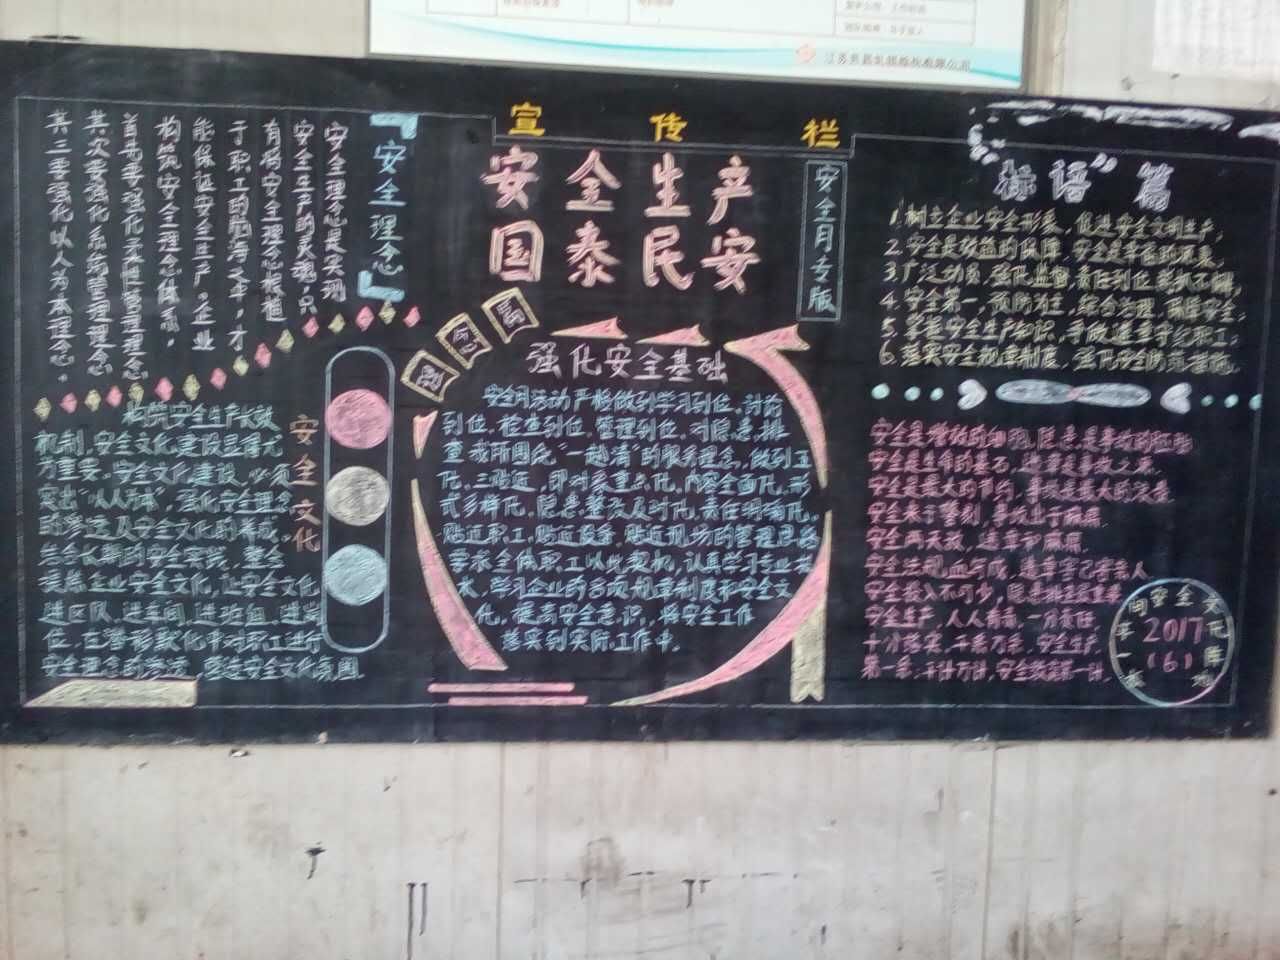 宣传栏
安全生产
国泰民安
安全月专版
『安全理念』
安全理念是实现
安全生产的灵魂,只
有将安全理念根植
于职工的脑海之中,才
能保证安全生产,企业
构筑安全理念体系,
首先要强化柔性管理理念
其次要强化系统管理理念
其三要强化以人为本理念。
安全文化
构筑安全生产长效
机制,安全文化建设显得尤
为重要。安全文化建设,必须
突出"以人为本",强化安全理念
的渗透及安全文化的养成。
总结长期的安全实践,整合
提炼企业安全文化,让安全文化
进区队、进车间、进班组、进岗
位,在潜移默化中对职工进行
安全理念的渗透,营造安全文化氛围。
强化安全基础
安全月活动严格做到学习到位、讨论
到位、检查到位、管理到位,对隐患、排
查
做到五
化、三贴近,即对象重点化、内容全面化、形
式多样化、隐患整改及时化、责任明确化。
贴近职工、贴近设备、贴近现场的管理思路
要求全体职工以此契机,认真学习专业技
术,学习企业的各项规章制度和安全文
化,提高安全意识,将安全工作
落实到实际工作中。
标语"篇
1.树立企业安全形象,促进安全文明生产,
2.安全是效益的保障,安全是幸福的源泉。
3.广泛动员,强化监督,责任到位,
4.安全第一,预防为主,综合治理,保障安全;
5.掌握安全生产知识,争做遵章守纪职工;
6.落实安全规章制度,强化安全防范措施。
安全是增效的细胞,隐患是事故的胚胎
安全是生命的基石,违章是事故之源
安全是最大的节约,事故是最大的浪费
安全来于警惕,事故出于麻痹
安全两天敌,违章和麻痹
安全法规血写成,违章害己害亲人
安全投入不可少,隐患
安全生产,人人有责,一分责任
十分落实,千条万条,安全生产
第一条,千计万计,安全教育第一计。
安全文化阵地
2017
(6)